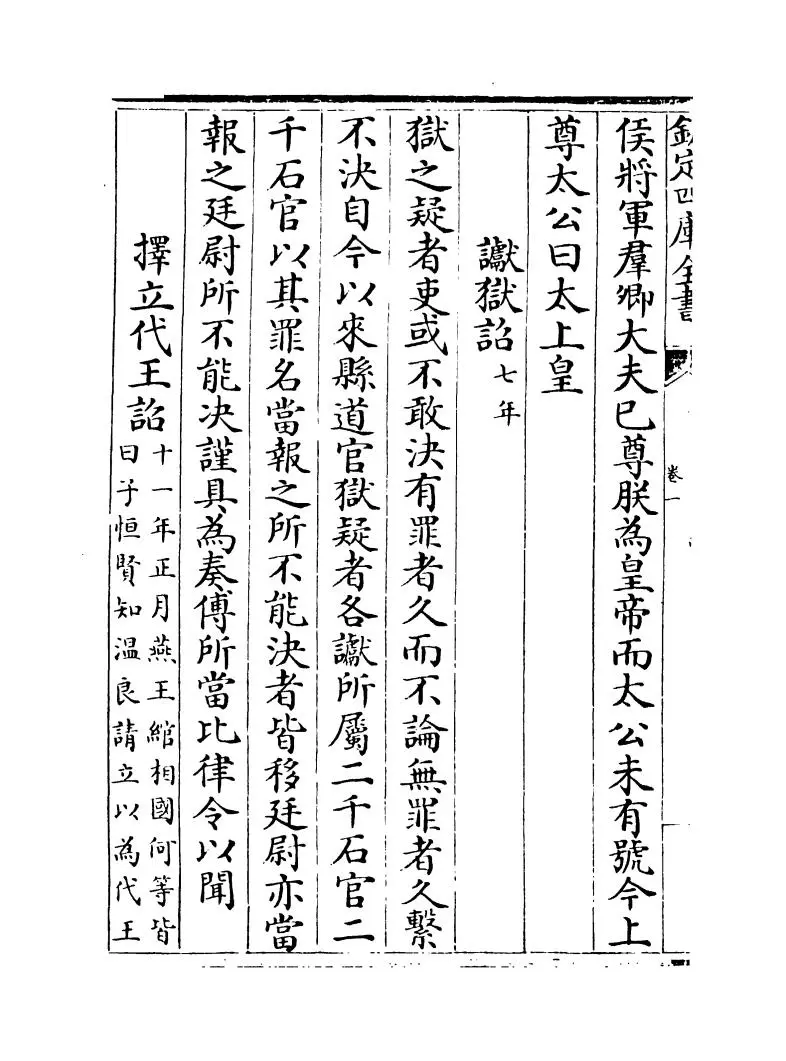 欽定四庫全書
卷一
侯將軍羣卿大夫已尊朕為皇帝而太公未有號今上
尊太公曰太上皇
讞獄詔七年
獄之疑者吏或不敢決有罪者久而不論無罪者久繫
不決自今以來縣道官獄疑者各讞所屬二千石官二
千石官以其罪名當報之所不能決者皆移廷尉亦當
報之廷尉所不能决謹具為奏傅所當比律令以聞
擇立代王詔十一年正月燕王綰相國何等皆
曰子恒賢知温良請立以為代王